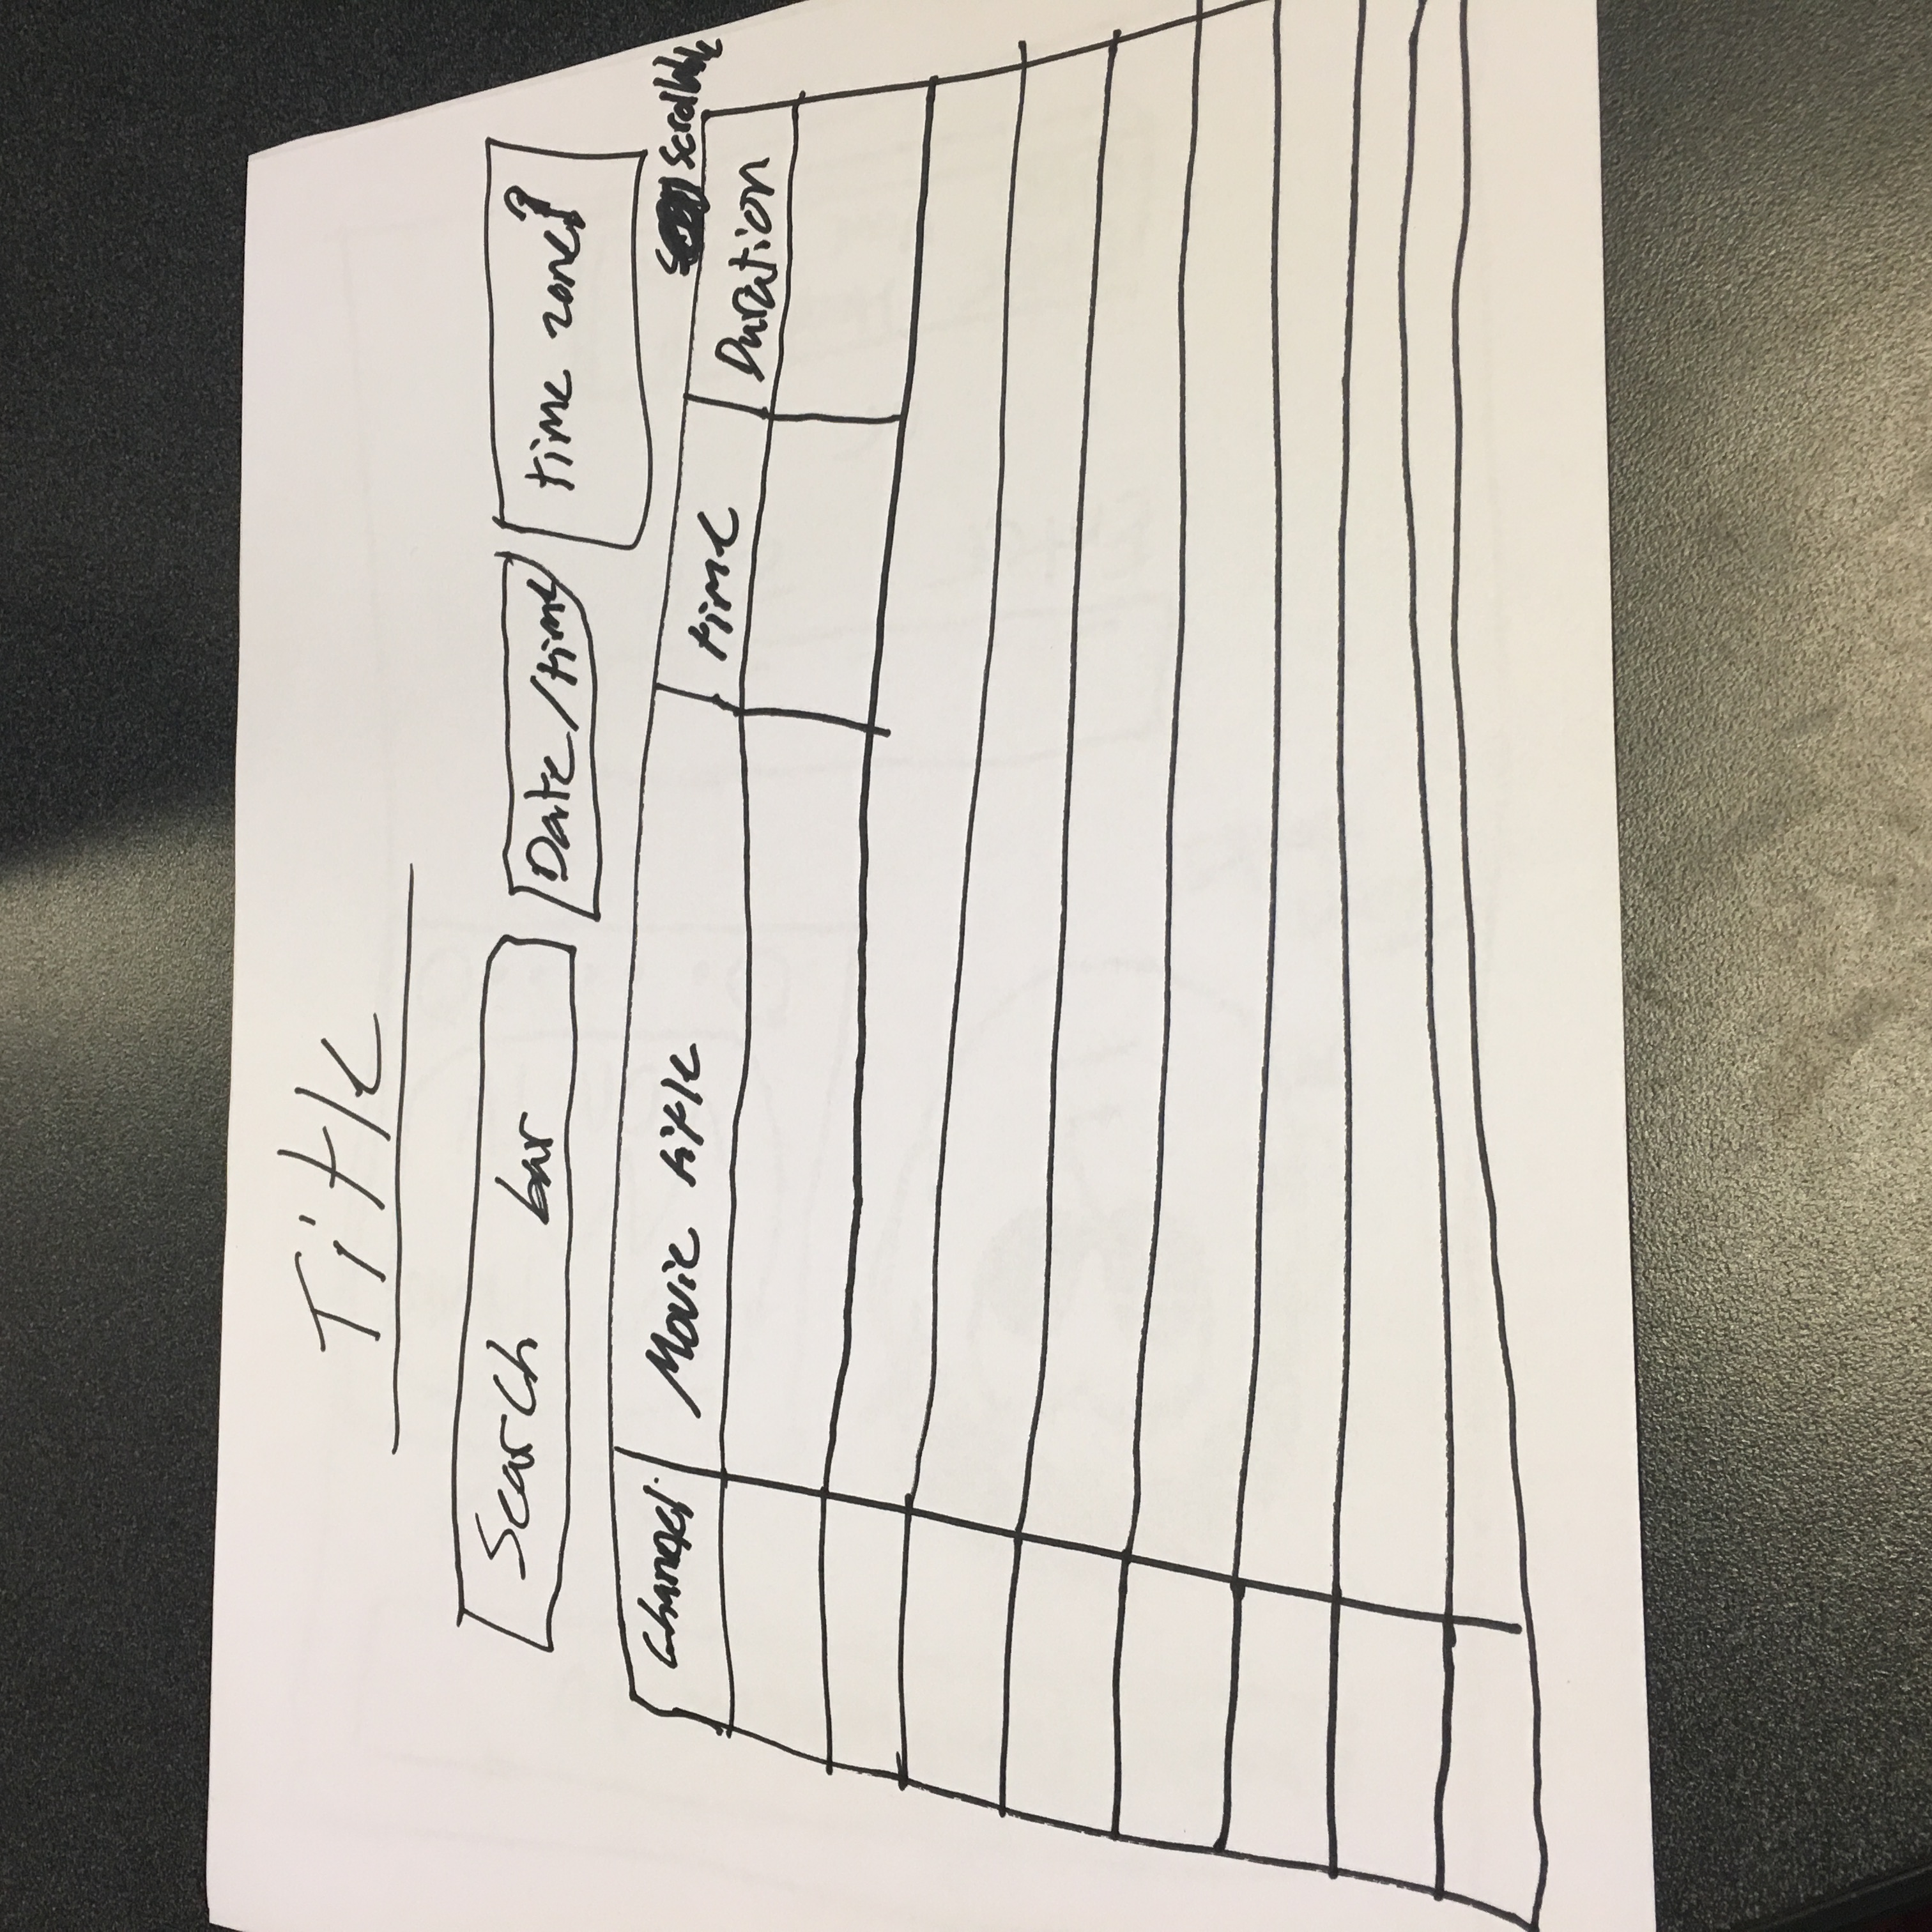 Title
Search bar
Date/time
time zone?
Scrollable
Channel
Movie title
time
Duration